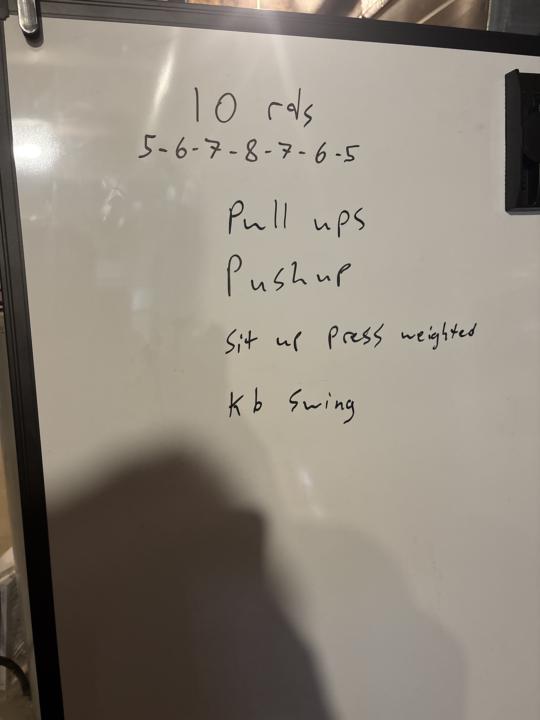 10 rds
5-6-7-8-7-6-5
Pull ups
Pushup
Sit up press weighted
Kb Swing